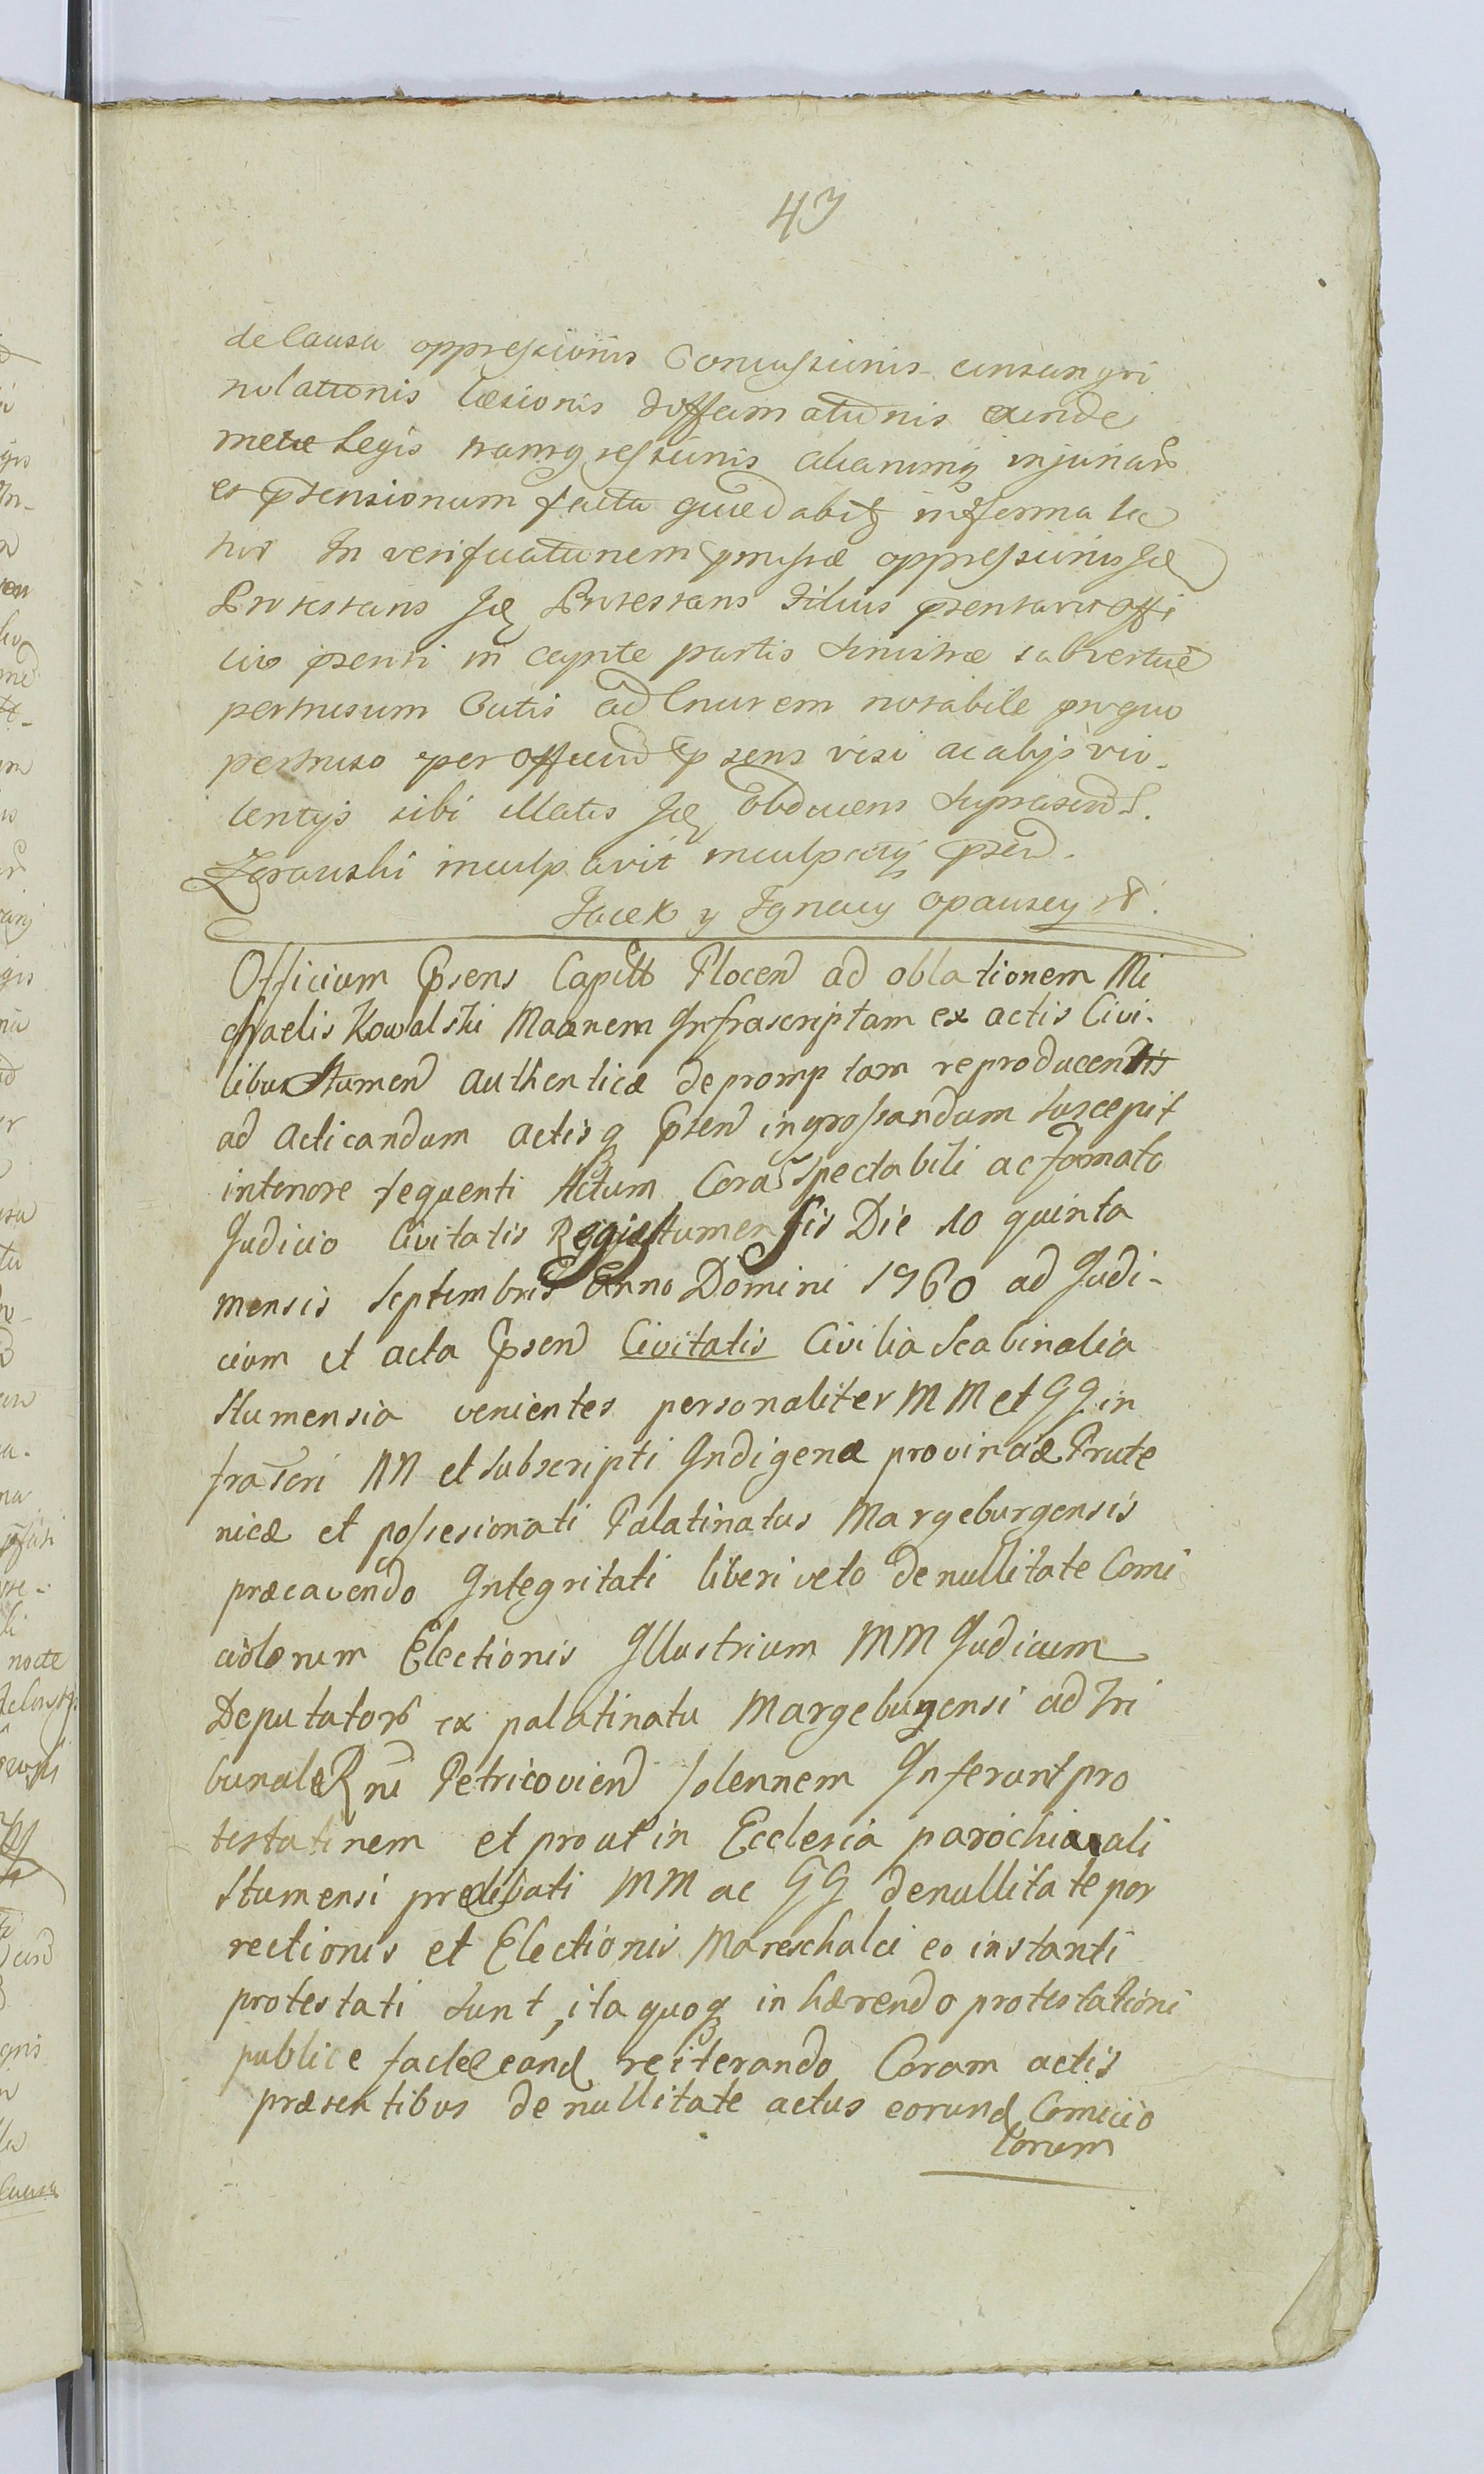 43
de Causa oppressionis Concussionis consangvi
nolationis læsionis diffamationis exinde
metæ Legis transgressionis aliarumq injuriar
et prtensionum facta quædabitq informa le
tur In verificationem præmissæ oppressionis Idē
Protestans Idē Protestans Filius prsentavit offi
cio prsenti in capite partis sinistræ
pertusum Cutis ad Cruorem notabile pro quo
pertuso per officiū prsens visi ac alijs vio-
lentijs sibi illatis Idē obducens suprascrd
inculpavit inculpatq prsen.
Jacek y Ignacy opauscy
Officium Prsens Capitt Plocen ad oblationem Mi
chaelis Kowalski Maanem Infrascriptam ex actis Civi-
libus Stumen authenticæ depromptam reproducentis
ad acticandum actisq Prsen ingrossandum suscepit
intenore sequenti Actum Corā Spectabili ac famato
Judicio Civitatis Regiæ Stumensis Die 10 quinta
mensis Septembris Anno Domini 1760 ad Judi-
cium et acta Prsen Civitatis Civilia Scabinalia
Stumensia venientes personaliter MM et GG in
frascri NN et subscripti Indigenæ provinciæ Prute
nicæ et possesionati Palatinatus Margeburgensis
præcavendo Integritati liberi veto de nullitate Comi
ciolorum Electionis Illustrium MM Judicum
Deputator ex palatinatu Margeburgensi ad Tri
bunale Rni Petricovien solennem Inferunt pro
testatinem et prout in Ecclesia parochiaali
Stumensi prælibati MM ac GG denullitate por
rectionis et Electionis Mareschalci eo instanti
protestati sunt, ita quoq in hærendo protestationi
publice factæ eand reiterando Coram actis
præsentibus de nullitate actus eorund Comicio
lorum